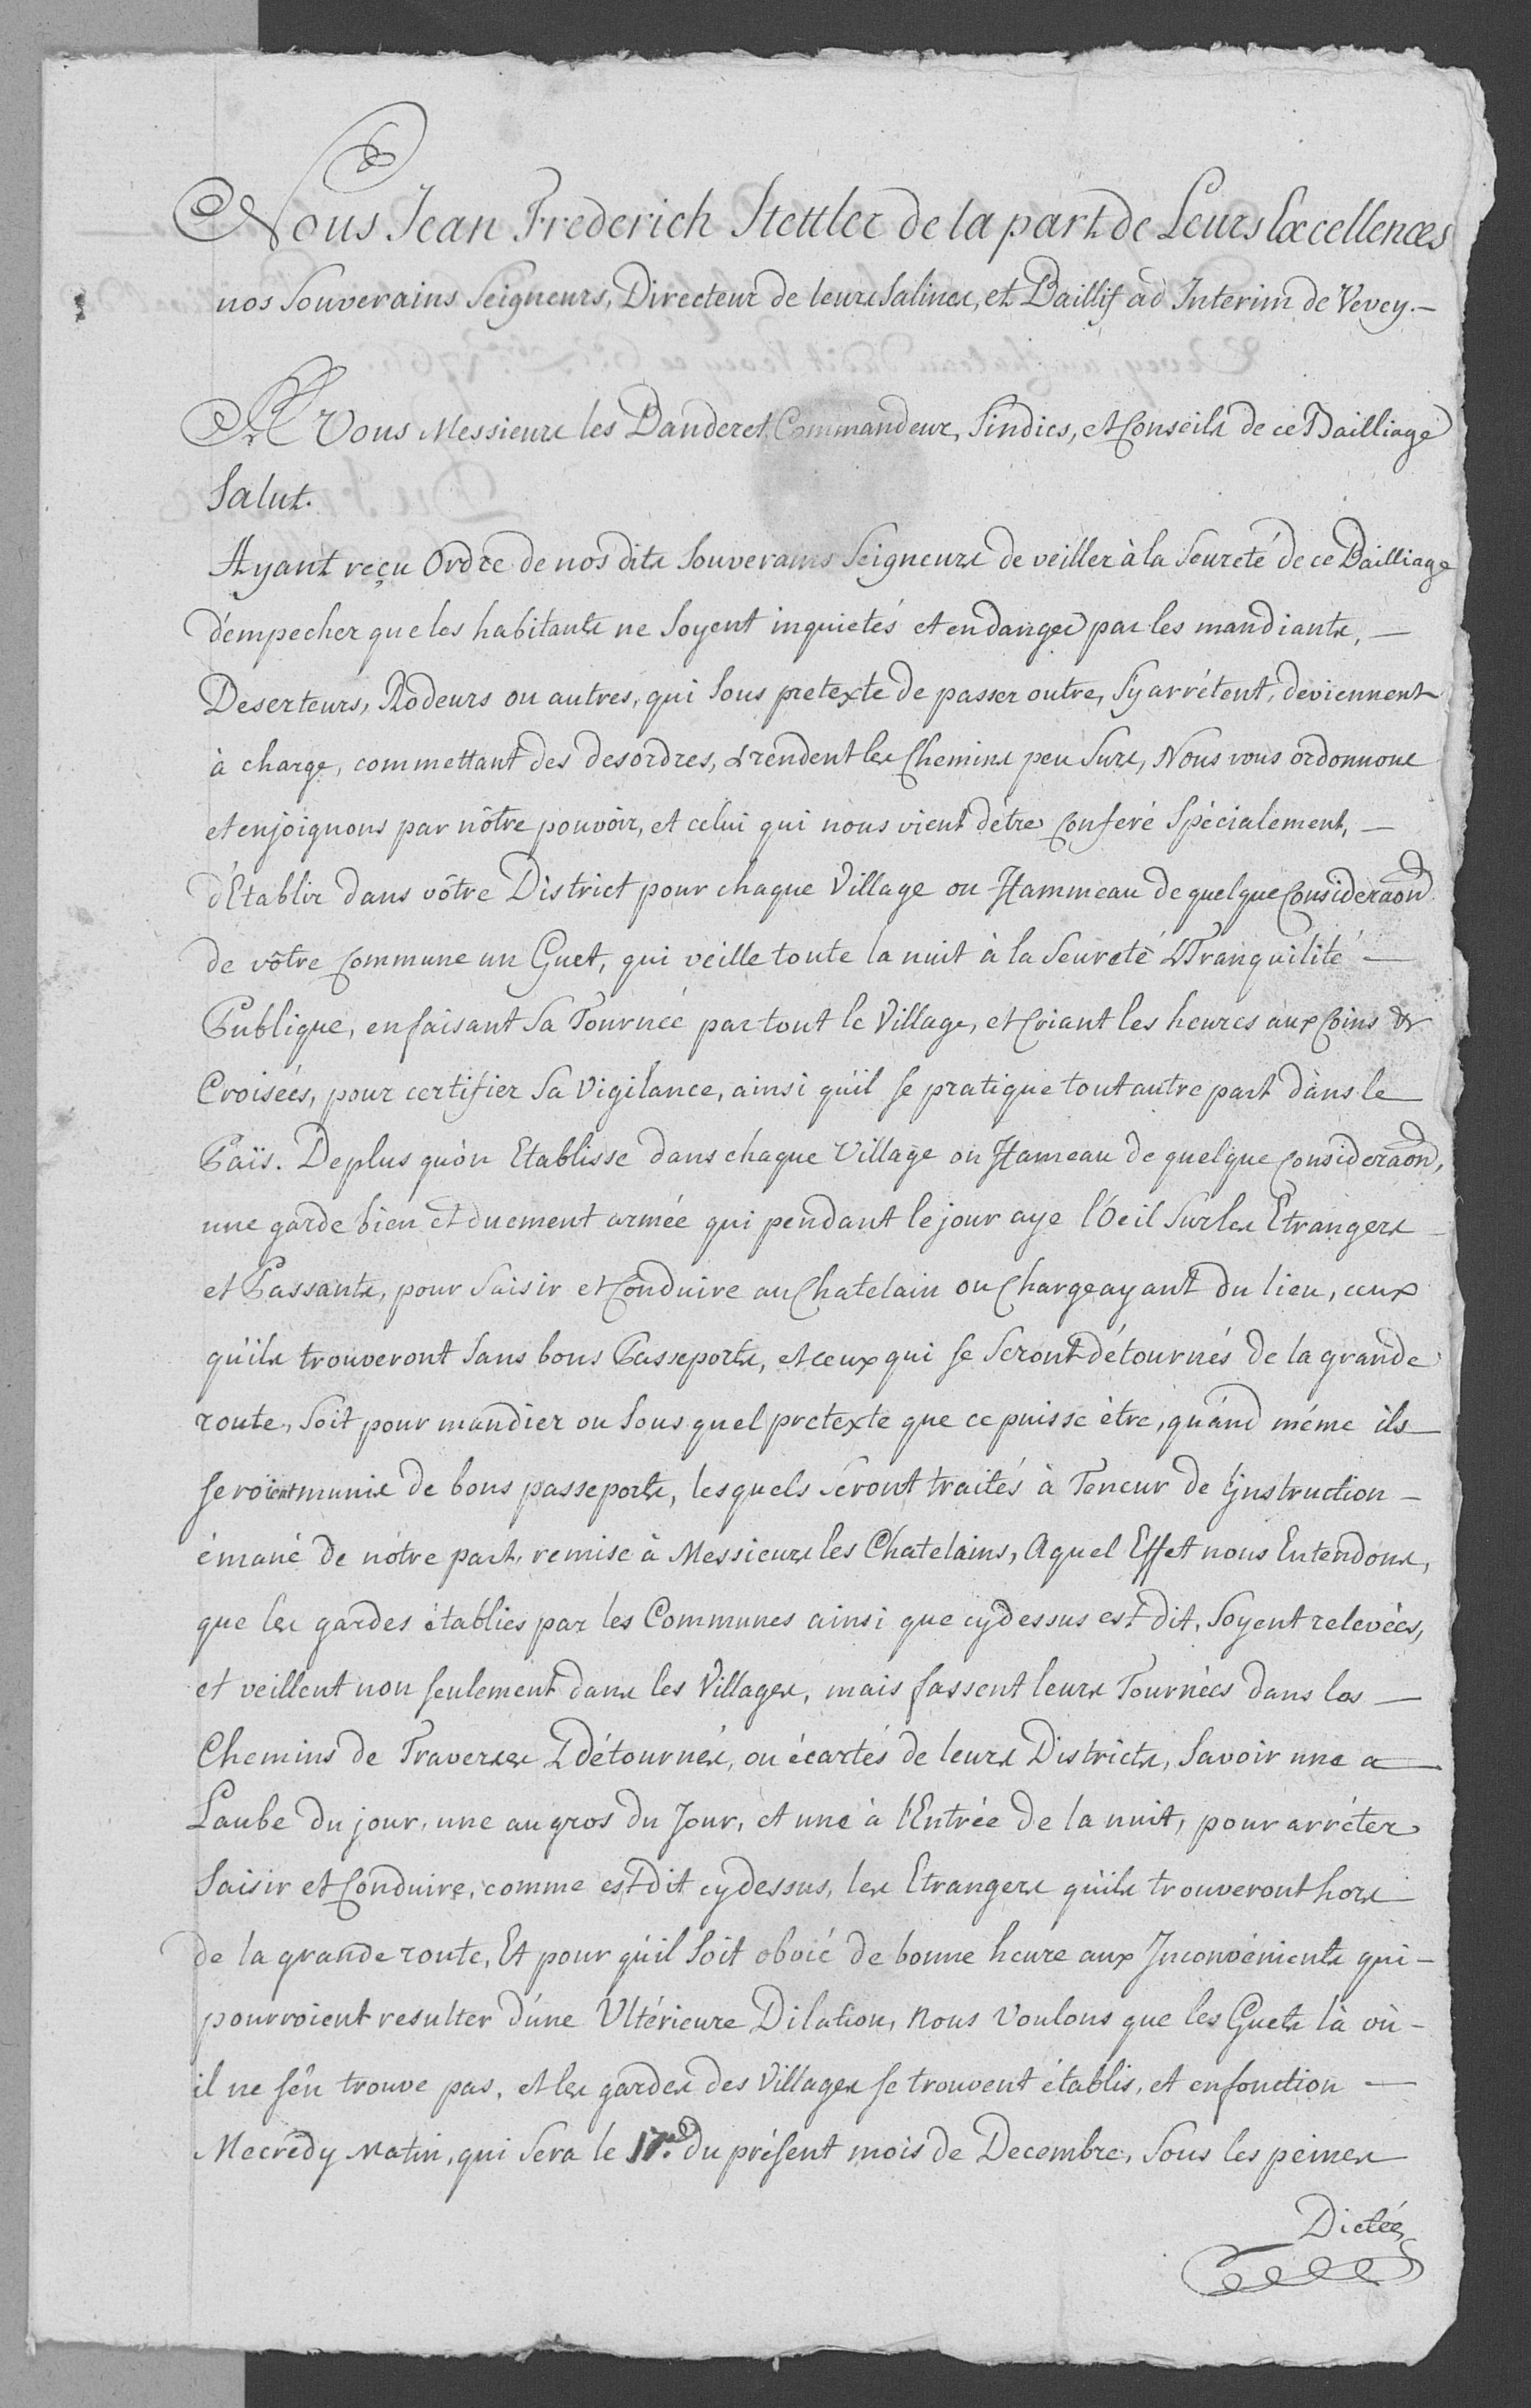 Nous Jean Frederich Stettler de la part de Leurs Excellences
nos Souverains Seigneurs, Directeur de leurs Salines, et Baillif ad Interim de Vevey.—
A Vous Messieurs les Banderet, Commandeur, Sindics, et Conseils de ce Bailliage
Salut.
Ayant reçu Ordre de nos dits Souverains Seigneurs de veiller à la Seureté de ce Bailliage
d'empecher que les habitants ne soyent inquietés et endanger par les mandiants, —
Deserteurs, Rodeurs ou autres, qui sous pretexte de passer outre, s'y arrétent, deviennent
à charge, commettant des desordres, & rendent les Chemins peu Surs, Nous vous ordonnons
et enjoignons par nôtre pouvoir, et celui qui nous vient d'étre Conferé Spécialement, —
d'Etablir dans vôtre District pour chaque Village ou Hammeau de quelque Consideraon
de vôtre Commune un Guet, qui veille toute la nuit à la Seureté & Tranquilité —
Publique, en faisant Sa Tournée par tout le Village, et Criant les heures aux Coins &
Croisées, pour certifier Sa Vigilance, ainsi qu'il se pratique tout autre part dans le
Païs. De plus qu'on Etablisse dans chaque Village ou Hameau de quelque Consideraon,
une garde bien et duement armée qui pendant le jour aye l'Oeil Sur les Etrangers
et Passants, pour Saisir et Conduire au Chatelain ou Chargeayant du lieu, ceux
qu'ils trouveront Sans bons Passeports, et ceux qui se Seront détournés de la grande
route, Soit pour mandier ou Sous quel pretexte que ce puisse être, quand méme ils
seroient munis de bons passeports, lesquels seront traités à Teneur de l'instruction —
émané de nôtre part, remise à Messieurs les Chatelains, Aquel Effet nous Entendons,
que les gardes établies par les Communes ainsi que cydessus est dit, Soyent relevées,
et veillent non seulement dans les Villages, mais fassent leurs Tournées dans les —
Chemins de Traverses & détournés, ou écartés de leurs Districts, Savoir une a
Laube du jour, une au gros du Jour, et une à l'Entrée de la nuit, pour arréter
Saisir et Conduire, comme est dit cydessus, les Etrangers qu'ils trouveront hors
de la grande route, Et pour qu'il Soit obvié de bonne heure aux Inconvénients qui —
pourroient resulter d'une Ultérieure Dilation, nous Voulons que les Guets là où —
il ne s'en trouve pas, et les gardes des Villages se trouvent établis, et en fonction —
Mecredy Matin, qui Sera le 17.me du présent mois de Decembre, Sous les peines
Dictées